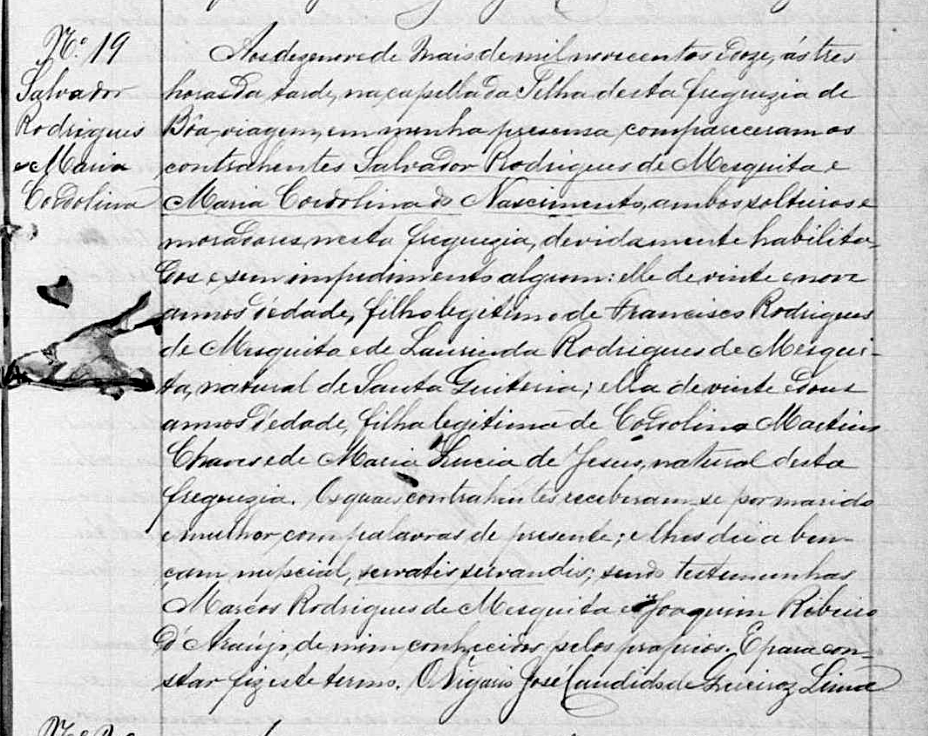 Nº 19
Salvador
Rodrigues
e Maria
Cordolina
Aos dezenove de Maio de mil novecentos doze, ás tres
horas da tarde, na capella da Telha desta freguezia de
Bôa-viagem, em minha presensa compareceram os
contrahentes Salvador Rodrigues de Mesquita e
Maria Cordolina do Nascimento, ambos solteiros e
moradores nesta freguezia, devidamente habilita-
dos e sem impedimento algum: elle de vinte e nove
annos d'edade, filho legitimo de Francisco Rodrigues
de Mesquita e de Laurinda Rodrigues de Mesqui-
ta, natural de Santa Quiteria; ella de vinte e dous
annos d'edade, filha legitima de Cordolino Martins
Chaves e de Maria Lucia de Jesus, natural desta
freguezia. Os quaes contrahentes receberam-se por marido
e mulher com palavras de presente; e lhes dei a ben-
cam nupcial, servatis servandis; sendo testemunhas
Marcos Rodrigues de Mesquita e Joaquim Ribeiro
d'Araújo, de mim conhecidos pelos proprios. E para con-
star fiz este termo. O Vigario José Candido de Queiroz Lima